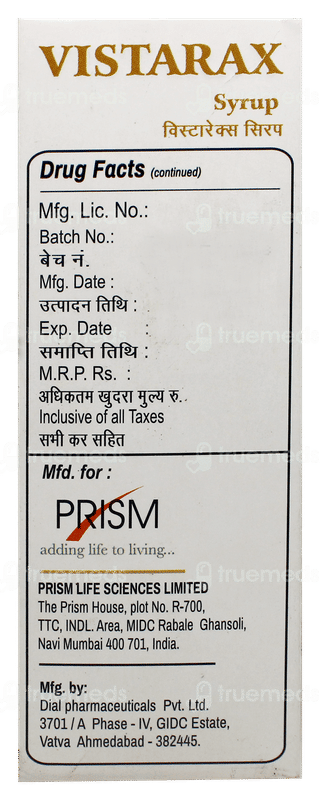 VISTARAX
Syrup
विस्टारेक्स सिरप
Drug Facts (continued)
Mfg. Lic. No.:
Batch No.:
बेच नं.
Mfg. Date :
उत्पादन तिथि :
Exp. Date :
समाप्ति तिथि :
M.R.P. Rs. :
अधिकतम खुदरा मुल्य रु.
Inclusive of all Taxes
सभी कर सहित
Mfd. for :
PRISM
adding life to living...
PRISM LIFE SCIENCES LIMITED
The Prism House, plot No. R-700,
TTC, INDL. Area, MIDC Rabale Ghansoli,
Navi Mumbai 400 701, India.
Mfg. by:
Dial pharmaceuticals Pvt. Ltd.
3701 / A Phase - IV, GIDC Estate,
Vatva Ahmedabad - 382445.